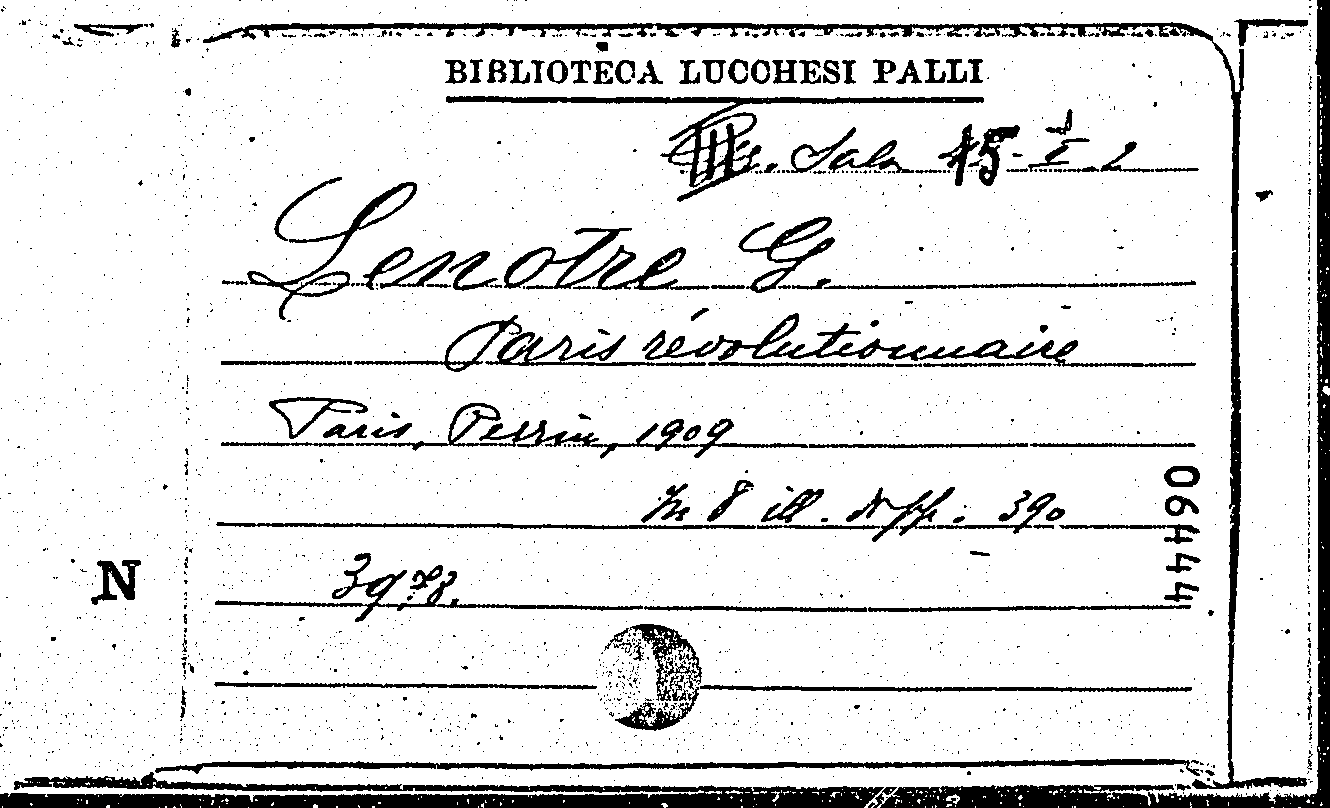 BIBLIOTECA LUCCHESI PALLI
Sala 15. I 2
Lenotre G.
Paris révolutionnaire
Paris, Perrin, 1909
In 8 ill. pp. 390
06444
N